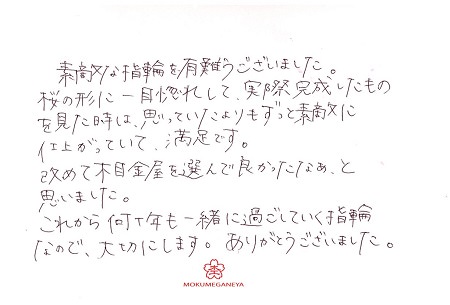 素敵な指輪を有難うございました。
桜の形に一目惚れして、実際完成したもの
を見た時は、思っていたよりもずっと素敵に
仕上がっていて、満足です。
改めて杢目金屋を選んで良かったなぁ、と
思いました。
これから何十年も一緒に過ごしていく指輪
なので、大切にします。ありがとうございました。
MOKUMEGANEYA